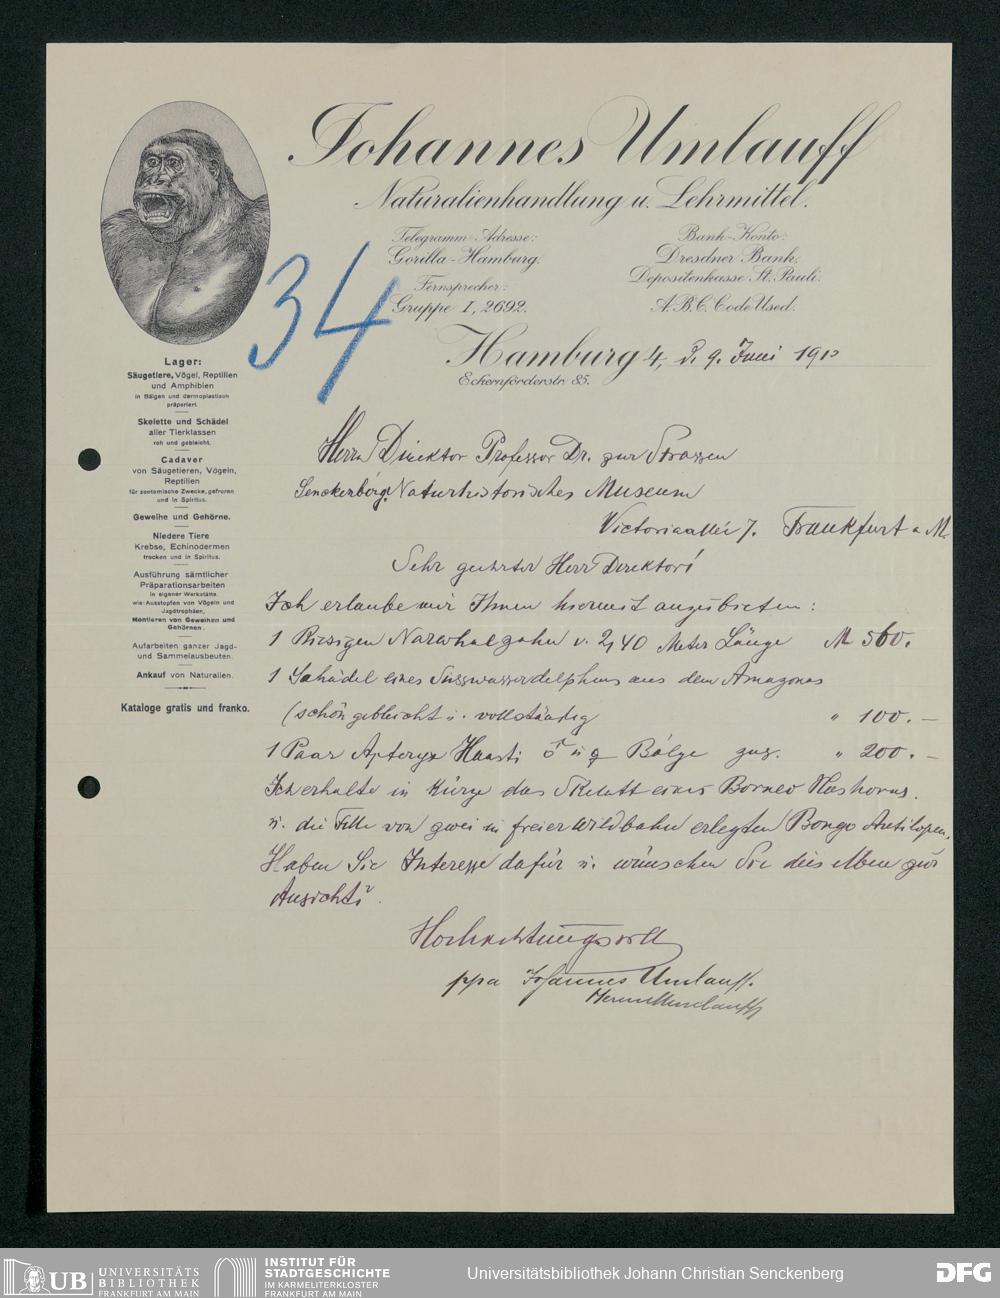 Johannes Umlauff
Naturalienhandlung u. Lehrmittel.
Telegramm-Adresse:
Gorilla-Hamburg.
Fernsprecher:
Gruppe I, 2692.
Bank-Konto:
Dresdner Bank,
Depositenkasse St. Pauli.
A.B.C. Code Used.
34
Hamburg 4, d. 9. Juni 1910
Eckernförderstr. 85.
Lager:
Säugetiere, Vögel, Reptilien
und Amphibien
in Bälgen und dermoplastisch
präpariert.
Skelette und Schädel
aller Tierklassen
roh und gebleicht.
Cadaver
von Säugetieren, Vögeln,
Reptilien
für zootomische Zwecke, gefroren
und in Spiritus.
Geweihe und Gehörne.
Niedere Tiere
Krebse, Echinodermen
trocken und in Spiritus.
Ausführung sämtlicher
Präparationsarbeiten
in eigener Werkstätte.
wie: Ausstopfen von Vögeln und
Jagdtrophäen,
Montieren von Geweihen und
Gehörnen.
Aufarbeiten ganzer Jagd-
und Sammelausbeuten.
Ankauf von Naturalien.
Kataloge gratis und franko.
Herrn Direktor Professor Dr. zur Strassen
Senckenberg. Naturhistorisches Museum
Victoriaallee 7. Frankfurt a M.
Sehr geehrter Herr Direktor!
Ich erlaube mir Ihnen hiermit anzubieten:
1 Riesigen Narwhalzahn v. 2,40 Meter Länge M 560.
1 Schädel eines Süsswasserdelphins aus dem Amazonas
(schön gebleicht u. vollständig " 100.–
1 Paar Apteryx Haasti ♂ u ♀ Bälge zus. " 200.–
Ich erhalte in Kürze das Skelett eines Borneo Nashorns
u. die Felle von zwei in freier Wildbahn erlegten Bongo Antilopen.
Haben Sie Interesse dafür u. wünschen Sie dieselben zur
Ansicht?
Hochachtungsvoll
ppa Johannes Umlauff.
Umlauff
UB UNIVERSITÄTS
BIBLIOTHEK
FRANKFURT AM MAIN
INSTITUT FÜR
STADTGESCHICHTE
IM KARMELITERKLOSTER
FRANKFURT AM MAIN
Universitätsbibliothek Johann Christian Senckenberg
DFG